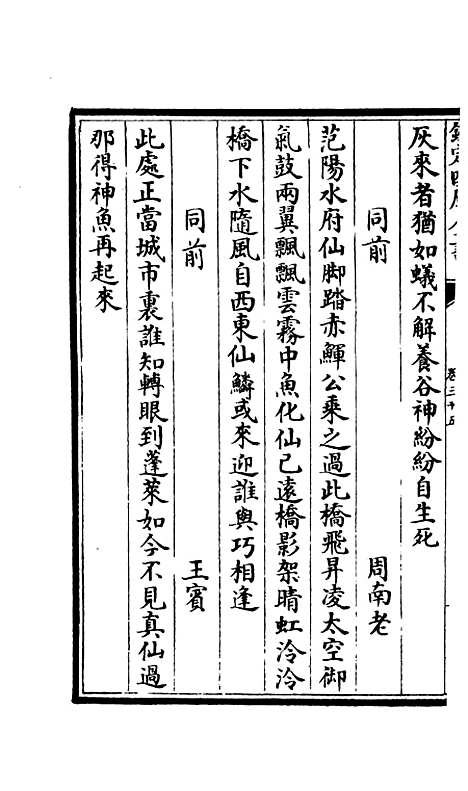 灰來者猶如蟻不解養谷神紛紛自生死
同前　周南老
范陽水府仙脚踏赤鯶公乘之過此橋飛昇凌太空御
氣鼓兩翼飄飄雲霧中魚化仙已遠橋影架晴虹泠泠
橋下水隨風自西東仙鱗或來迎誰與巧相逢
同前　王賓
此處正當城市裏誰知轉眼到蓬萊如今不見真仙過
那得神魚再起來